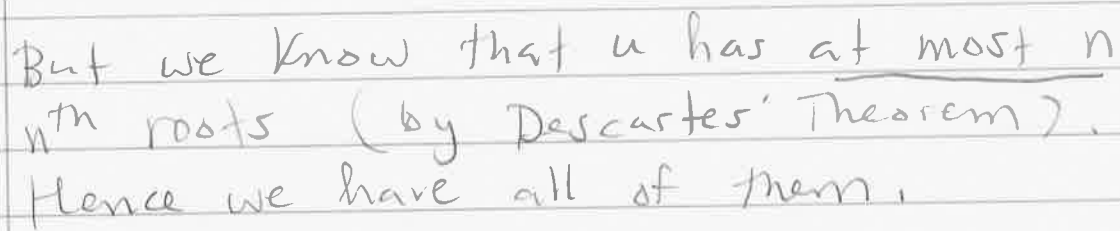 But we know that u has at most n
nth roots (by Descartes' Theorem).
Hence we have all of them.